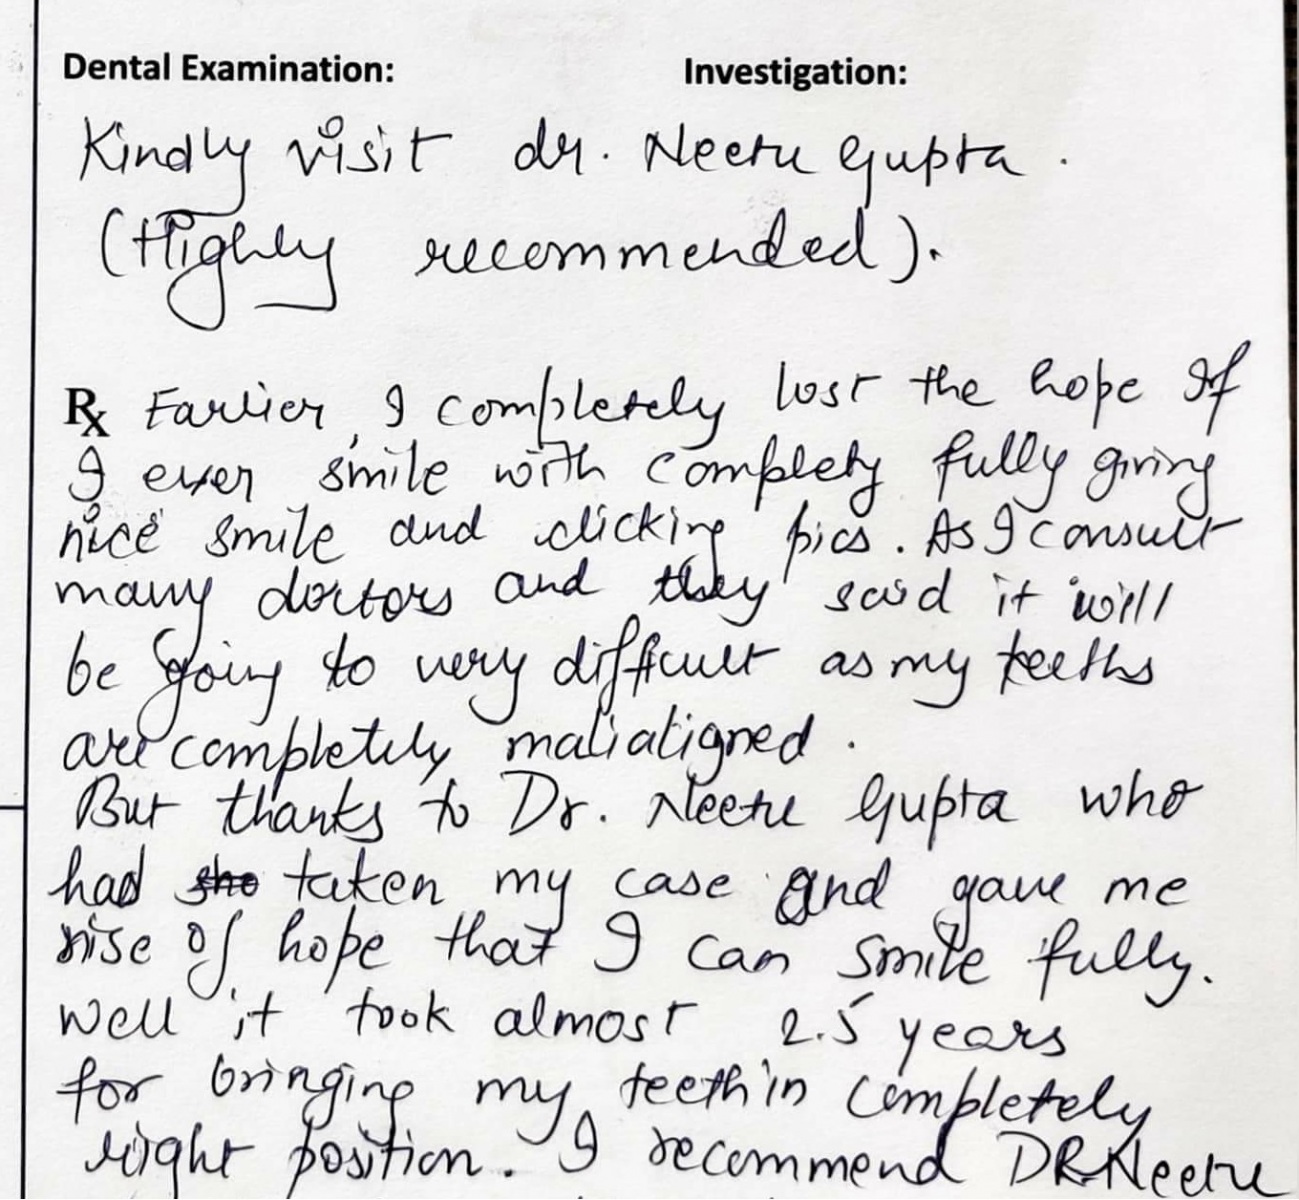 Dental Examination: Investigation:
Kindly visit dr. Neetu Gupta.
(Highly recommended).
Rx Earlier, I completely lost the hope If
I ever smile with complety fully giving
nice smile and clicking pics. As I consult
many doctors and they said it will
be going to very difficult as my teeths
are completely malialigned.
But thanks to Dr. Neetu Gupta who
had she taken my case and gave me
rise of hope that I can smile fully.
Well it took almost 2.5 years
for bringing my teeth in completely
right position. I recommend DR. Neetu